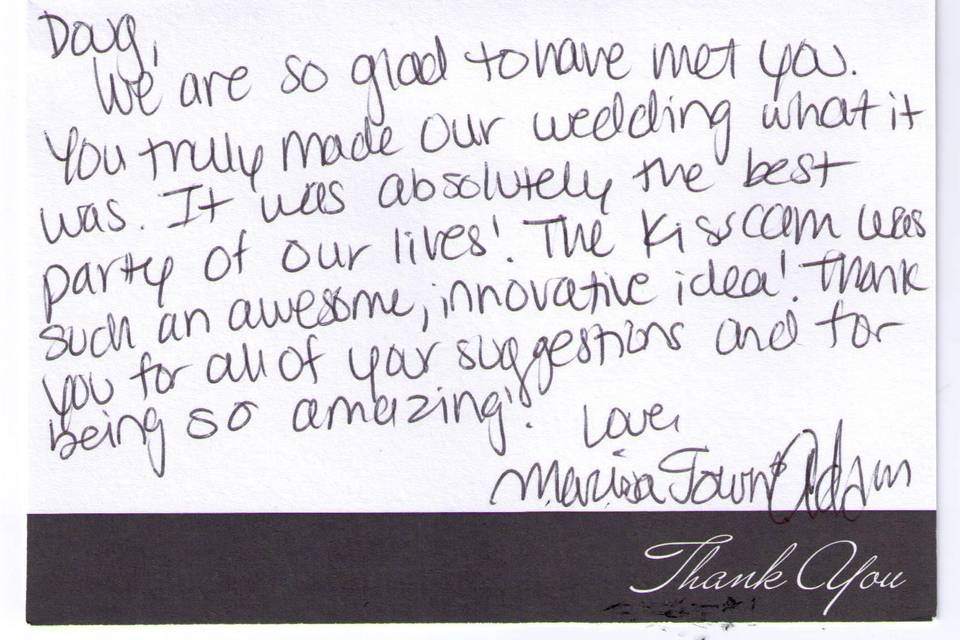 Doug,
We are so glad to have met you.
You truly made our wedding what it
was. It was absolutely the best
party of our lives! The Kisscam was
such an awesome, innovative idea! Thank
you for all of your suggestions and for
being so amazing!
Love,
Marisa Town & Adam
Thank You